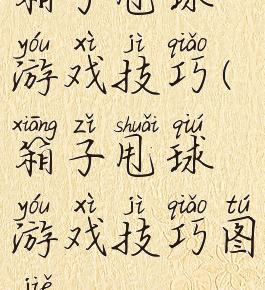 箱子甩球
yóu xì jì qiǎo
游戏技巧(
xiāng zǐ shuǎi qiú
箱子甩球
yóu xì jì qiǎo tú
游戏技巧图
jiě